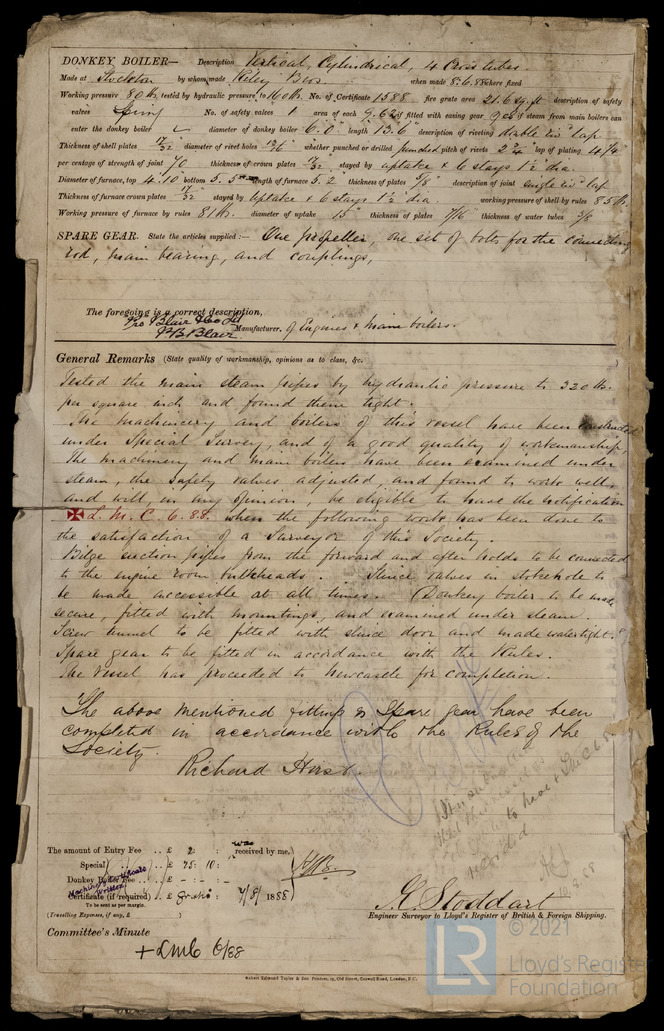 DONKEY BOILER— Description Vertical, Cylindrical, 4 Cross tubes.
Made at Stockton by whom made Riley Bros. when made 8.6.88 where fixed
Working pressure 80 lb. tested by hydraulic pressure to 160 lb. No. of Certificate 1588 fire grate area 21.6 sq. ft description of safety
valves Spring No. of safety valves 1 area of each 9.62 if fitted with easing gear yes if steam from main boilers can
enter the donkey boiler diameter of donkey boiler 6.0" length 13.6" description of riveting double riv lap
Thickness of shell plates 17/32 diameter of rivet holes 13/16 whether punched or drilled punched pitch of rivets 2 3/4" lap of plating 4 1/4"
per centage of strength of joint 70 thickness of crown plates 17/32 stayed by uptake & 6 stays 1 1/2" dia.
Diameter of furnace, top 4.10 bottom 5.5 length of furnace 5.2" thickness of plates 5/8" description of joint single riv lap
Thickness of furnace crown plates 17/32 stayed by Uptake & 6 stays 1 1/2 dia. working pressure of shell by rules 85 lb.
Working pressure of furnace by rules 81 lb. diameter of uptake 15" thickness of plates 7/16 thickness of water tubes 3/8
SPARE GEAR. State the articles supplied:— One propeller, one set of bolts for the connecting
rod, main bearing, and couplings,
The foregoing is a correct description,
Pro Blair & Co Ld
Blair Manufacturer. of Engines & Main boilers.
General Remarks (State quality of workmanship, opinions as to class, &c.
Tested the main steam pipes by hydraulic pressure to 320 lb.
per square inch and found them tight.
The machinery and boilers of this vessel have been constructed
under Special Survey, and of a good quality of workmanship,
The machinery and main boilers have been examined under
steam, the safety valves adjusted, and found to work well,
and will, in my opinion be eligible to have the notification
L.M.C. 6.88. when the following work has been done to
the satisfaction of a Surveyor of this Society.
Bilge suction pipes from the forward and after holds to be connected
to the engine room bulkheads. Sluice valves in stokehole to
be made accessible at all times. (Donkey boiler to be made
secure, fitted with mountings, and examined under steam.
Screw tunnel to be fitted with sluice door and made watertight.
Spare gear to be fitted in accordance with the Rules.
The Vessel has proceeded to Newcastle for completion.
The above mentioned fittings & Spare gear have been
completed in accordance with the Rules of the
Society.
Richard Hirst.
to have + LMC 6.88
recorded
The amount of Entry Fee .. £ 2 : : received by me,
Special .. £ 25 : 10 :
Donkey Boiler Fee .. £ - : - : -
Machinery Certificate
Written
Certificate (if required) .. £ gratis : 7/8/ 1888
To be sent as per margin.
(Travelling Expenses, if any, £ )
G. Stoddart
Engineer Surveyor to Lloyd's Register of British & Foreign Shipping.
Committee's Minute
+LMC 6/88
Robert Edmund Taylor & Son Printers, 19, Old Street, Goswell Road, London, E.C.
© 2021
LR
Lloyd's Register
Foundation